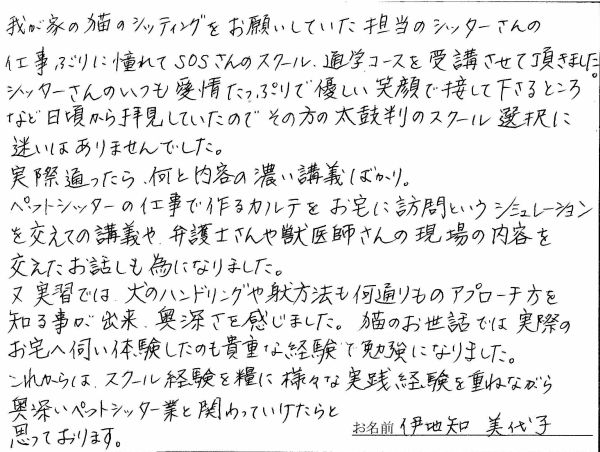 我が家の猫のシッティングをお願いしていた担当のシッターさんの
仕事ぶりに憧れてSOSさんのスクール、通学コースを受講させて頂きました。
シッターさんのいつも愛情たっぷりで優しい笑顔で接して下さるところ
など日頃から拝見していたのでその方の太鼓判のスクール選択に
迷いはありませんでした。
実際通ったら、何と内容の濃い講義ばかり。
ペットシッターの仕事で作るカルテをお宅に訪問というシミュレーション
を交えての講義や、弁護士さんや獣医師さんの現場の内容を
交えたお話しも為になりました。
又実習では、犬のハンドリングや躾方法も何通りものアプローチ方を
知る事が出来、奥深さを感じました。猫のお世話では実際の
お宅へ伺い体験したのも貴重な経験で勉強になりました。
これからは、スクール経験を糧に様々な実践経験を重ねながら
奥深いペットシッター業と関わっていけたらと
思っております。
お名前 伊地知 美代子